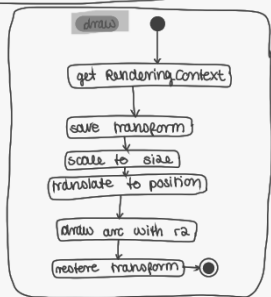 draw
get Rendering Context
save transform
scale to size
translate to position
draw arc with r2
restore transform